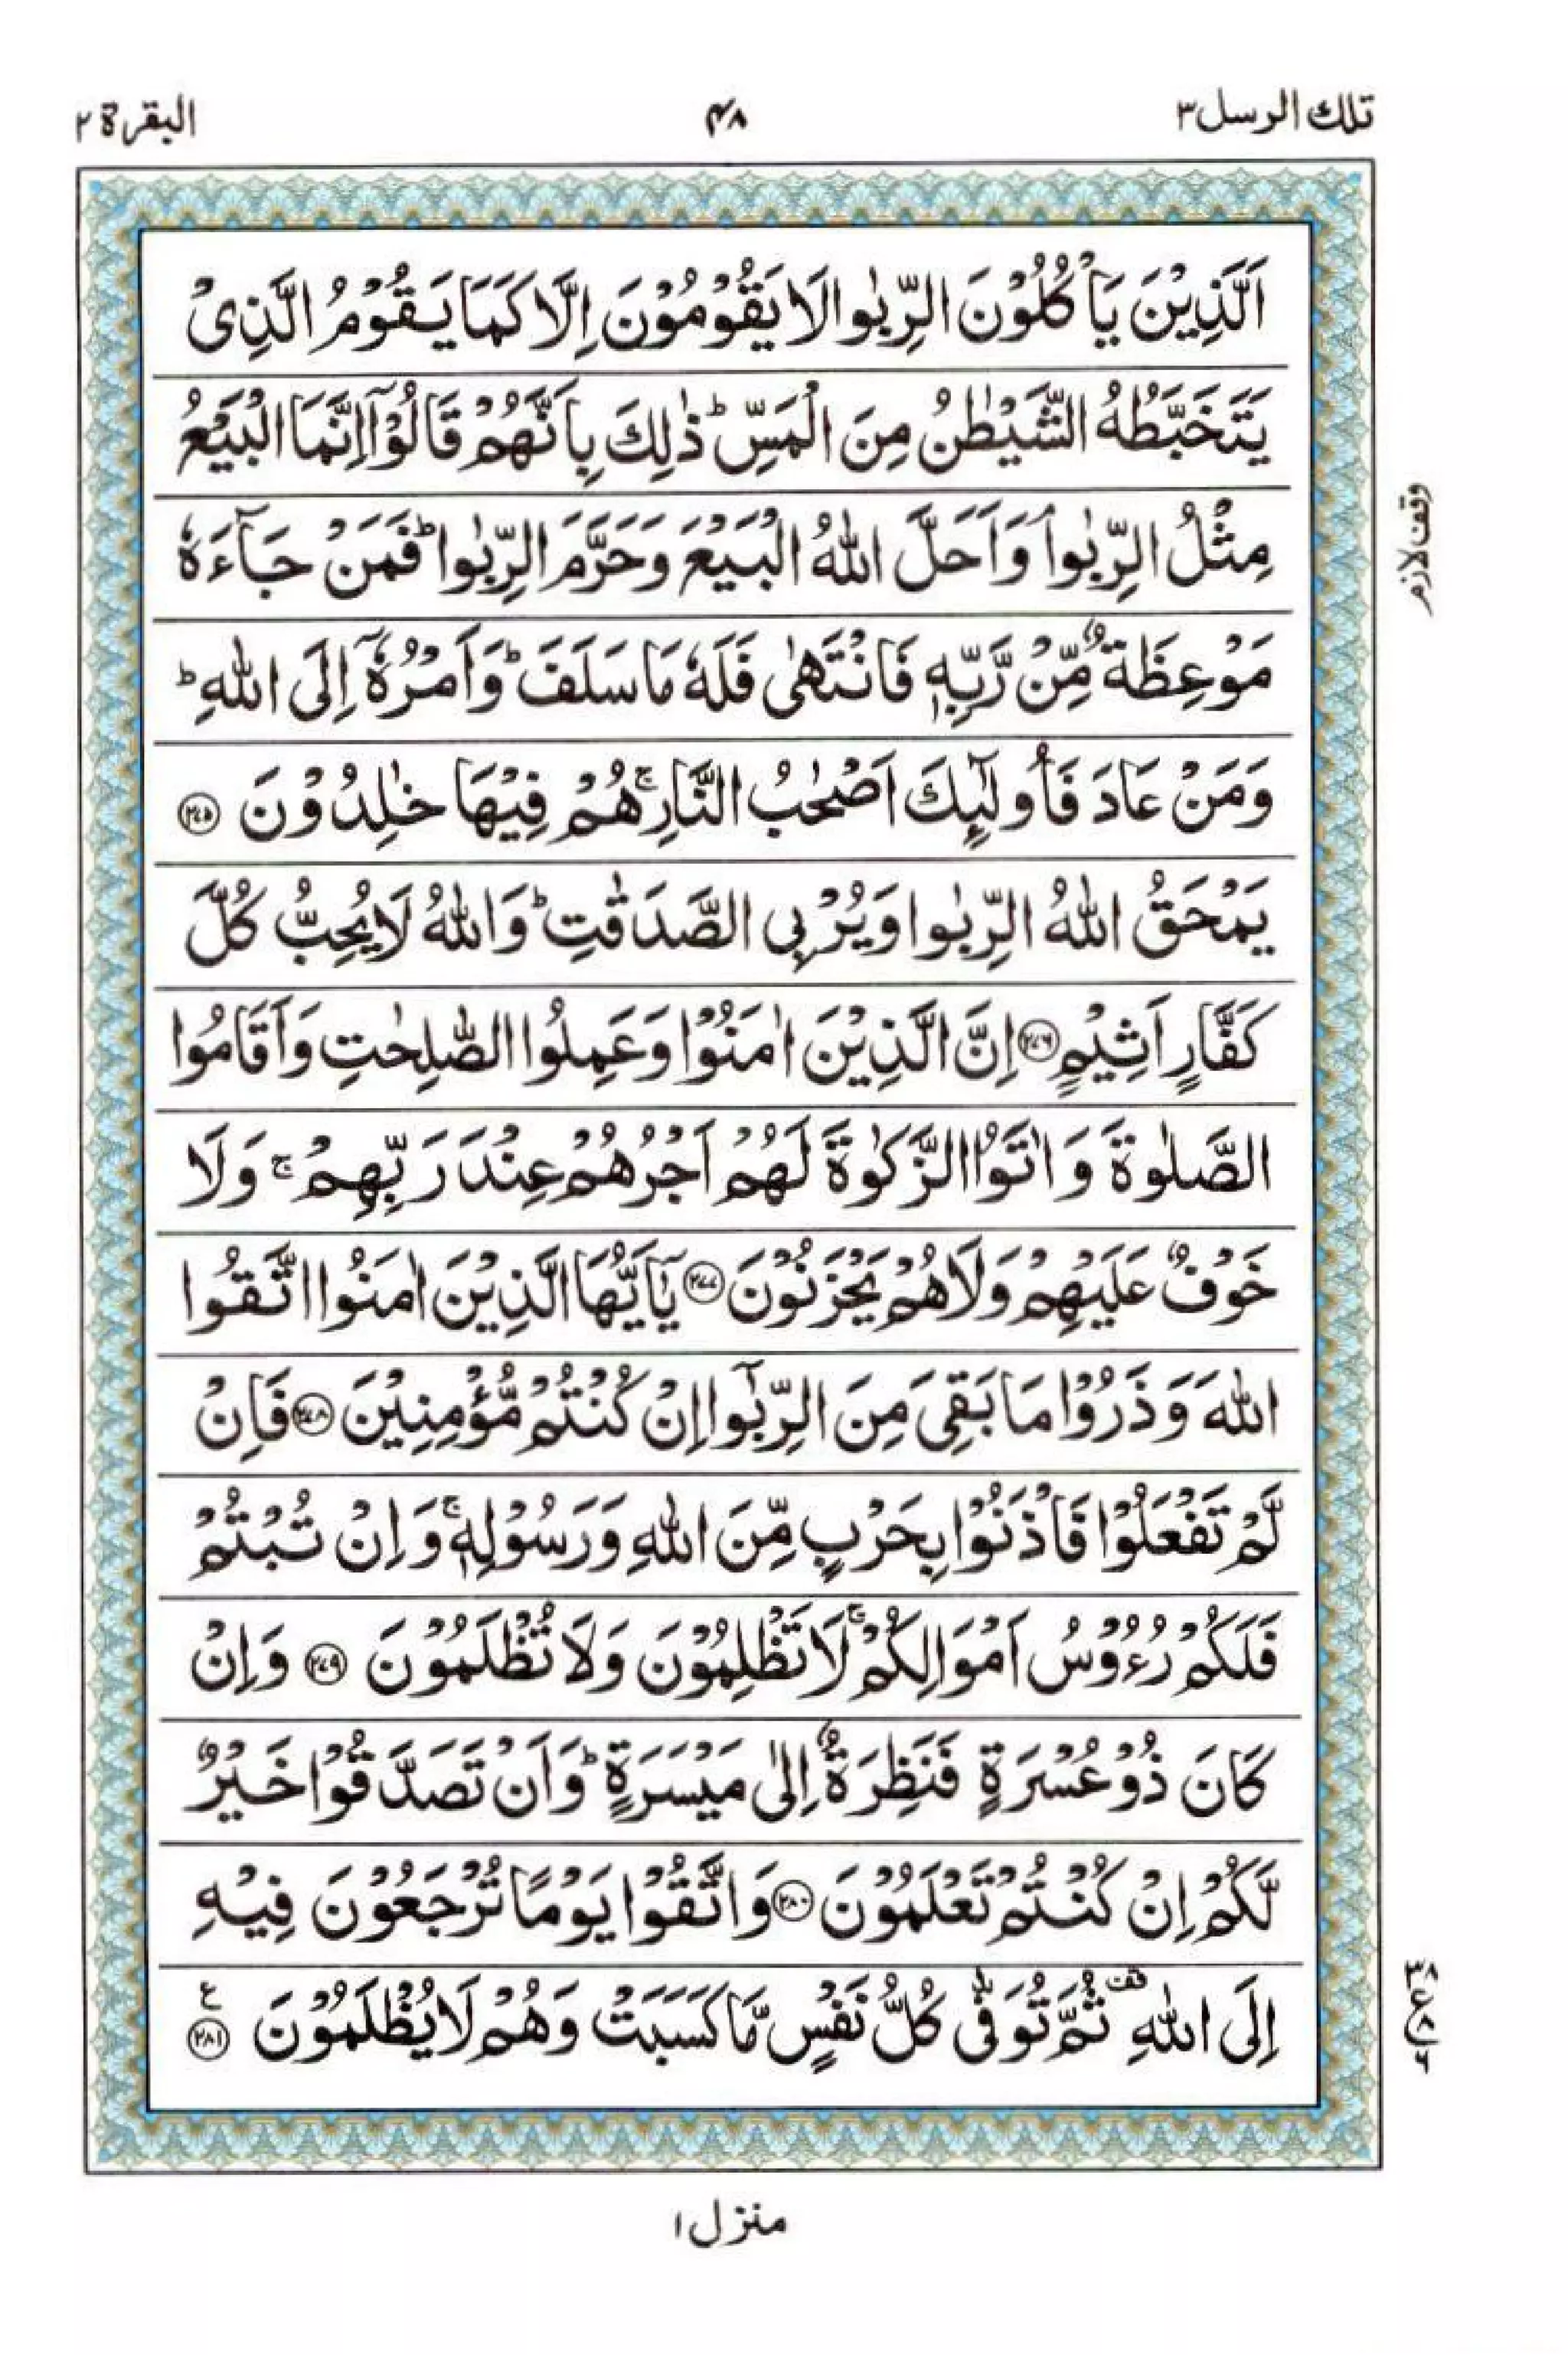 تلك الرسل ٣
٤٨
البقرة ٢
اَلَّذِيْنَ يَاْكُلُوْنَ الرِّبٰوا لَا يَقُوْمُوْنَ اِلَّا كَمَا يَقُوْمُ الَّذِىْ
يَتَخَبَّطُهُ الشَّيْطٰنُ مِنَ الْمَسِّ ؕ ذٰلِكَ بِاَنَّهُمْ قَالُوْۤا اِنَّمَا الْبَيْعُ
مِثْلُ الرِّبٰوا ۘ وَاَحَلَّ اللّٰهُ الْبَيْعَ وَحَرَّمَ الرِّبٰوا ؕ فَمَنْ جَآءَهٗ
وقف لازم
مَوْعِظَةٌ مِّنْ رَّبِّهٖ فَانْتَهٰى فَلَهٗ مَا سَلَفَ ؕ وَاَمْرُهٗۤ اِلَى اللّٰهِ ؕ
وَمَنْ عَادَ فَاُولٰٓئِكَ اَصْحٰبُ النَّارِ ۚ هُمْ فِيْهَا خٰلِدُوْنَ ﴿٢٧٥﴾
يَمْحَقُ اللّٰهُ الرِّبٰوا وَيُرْبِى الصَّدَقٰتِ ؕ وَاللّٰهُ لَا يُحِبُّ كُلَّ
كَفَّارٍ اَثِيْمٍ ﴿٢٧٦﴾ اِنَّ الَّذِيْنَ اٰمَنُوْا وَعَمِلُوا الصّٰلِحٰتِ وَاَقَامُوا
الصَّلٰوةَ وَاٰتَوُا الزَّكٰوةَ لَهُمْ اَجْرُهُمْ عِنْدَ رَبِّهِمْ ۚ وَلَا
خَوْفٌ عَلَيْهِمْ وَلَا هُمْ يَحْزَنُوْنَ ﴿٢٧٧﴾ يٰۤاَيُّهَا الَّذِيْنَ اٰمَنُوا اتَّقُوا
اللّٰهَ وَذَرُوْا مَا بَقِىَ مِنَ الرِّبٰۤوا اِنْ كُنْتُمْ مُّؤْمِنِيْنَ ﴿٢٧٨﴾ فَاِنْ
لَّمْ تَفْعَلُوْا فَاْذَنُوْا بِحَرْبٍ مِّنَ اللّٰهِ وَرَسُوْلِهٖ ۚ وَاِنْ تُبْتُمْ
فَلَكُمْ رُءُوْسُ اَمْوَالِكُمْ ۚ لَا تَظْلِمُوْنَ وَلَا تُظْلَمُوْنَ ﴿٢٧٩﴾ وَاِنْ
كَانَ ذُوْ عُسْرَةٍ فَنَظِرَةٌ اِلٰى مَيْسَرَةٍ ؕ وَاَنْ تَصَدَّقُوْا خَيْرٌ
لَّكُمْ اِنْ كُنْتُمْ تَعْلَمُوْنَ ﴿٢٨٠﴾ وَاتَّقُوْا يَوْمًا تُرْجَعُوْنَ فِيْهِ
اِلَى اللّٰهِ ۫ قف ثُمَّ تُوَفّٰى كُلُّ نَفْسٍ مَّا كَسَبَتْ وَهُمْ لَا يُظْلَمُوْنَ ﴿٢٨١﴾ ع
٣٨
ع ٨
٦
منزل ١